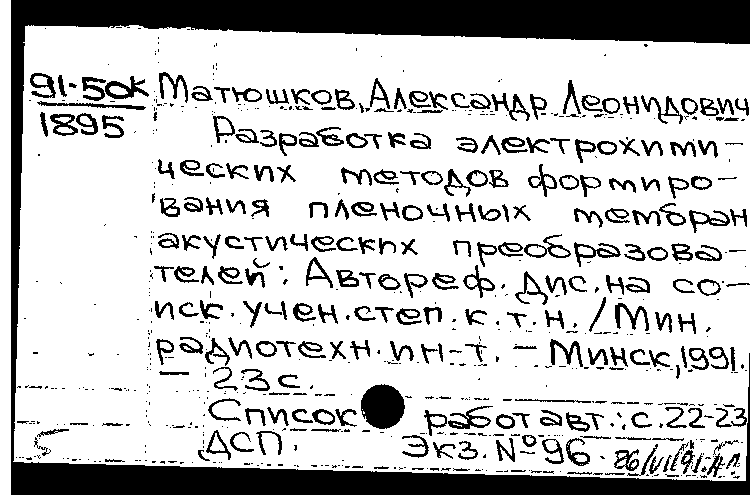 91-50к Матюшков, Александр Леонидович
1895
Разработка электрохими-
ческих методов формиро-
вания пленочных мембран
акустических преобразова-
телей: Автореф. дис. на со-
иск. учен. степ. к. т. н. / Мин.
радиотехн. ин-т. — Минск, 1991.
— 23 с.
Список работ авт.: с. 22-23
ДСП. Экз. № 96.